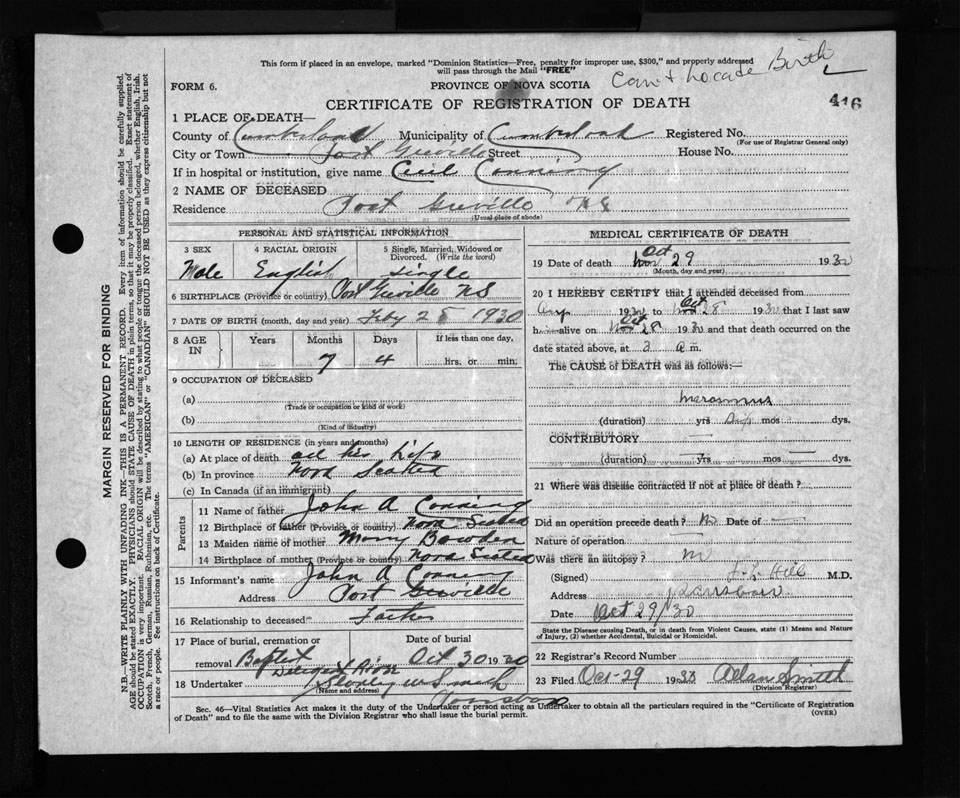 This form if placed in an envelope, marked "Dominion Statistics—Free, penalty for improper use, $300," and properly addressed
will pass through the Mail "FREE"
Can't Locate Birth
FORM 6.
PROVINCE OF NOVA SCOTIA
416
CERTIFICATE OF REGISTRATION OF DEATH
1 PLACE OF DEATH—
County of Cumberland Municipality of Cumberland Registered No.
(For use of Registrar General only)
City or Town Port Greville Street House No.
If in hospital or institution, give name Cecil Conning
2 NAME OF DECEASED
Residence Port Greville N S
(Usual place of abode)
PERSONAL AND STATISTICAL INFORMATION
3 SEX 4 RACIAL ORIGIN 5 Single, Married, Widowed or Divorced. (Write the word)
Male English single
6 BIRTHPLACE (Province or country) Port Greville NS
7 DATE OF BIRTH (month, day and year) Feby 25 1930
8 AGE IN Years Months Days If less than one day,
7 4 hrs. or min.
9 OCCUPATION OF DECEASED
(a)
(Trade or occupation or kind of work)
(b)
(Kind of industry)
10 LENGTH OF RESIDENCE (in years and months)
(a) At place of death all his life
(b) In province Nova Scotia
(c) In Canada (if an immigrant)
Parents
11 Name of father John A Conning
12 Birthplace of father (Province or country) Nova Scotia
13 Maiden name of mother Bowden
14 Birthplace of mother (Province or country) Nova Scotia
15 Informant's name John A Conning
Address Port Greville
16 Relationship to deceased Father
17 Place of burial, cremation or removal Date of burial
Baptist Oct 30 1930
18 Undertaker W Smith
(Name and address)
MEDICAL CERTIFICATE OF DEATH
19 Date of death Oct 29 1930
(Month, day and year)
20 I HEREBY CERTIFY that I attended deceased from
Aug 1930 to Oct 28 1930 that I last saw
h alive on Oct 28 1930 and that death occurred on
date stated above, at 3 a m.
The CAUSE of DEATH was as follows:—
Marasmus
(duration) yrs Six mos dys.
CONTRIBUTORY —
(duration) — yrs mos — dys.
21 Where was disease contracted if not at place of death?
Did an operation precede death? No Date of —
Nature of operation —
Was there an autopsy? no
(Signed) Hill M.D.
Address Parrsboro
Date Oct 29/30
State the Disease causing Death, or in death from Violent Causes, state (1) Means and
Nature of Injury, (2) whether Accidental, Suicidal or Homicidal.
22 Registrar's Record Number
23 Filed Oct-29 1930 Allan Smith
(Division Registrar)
Sec. 46—Vital Statistics Act makes it the duty of the Undertaker or person acting as Undertaker to obtain all the particulars required in the "Certificate of Registration
of Death" and to file the same with the Division Registrar who shall issue the burial permit.
(OVER)
MARGIN RESERVED FOR BINDING
N.B.—WRITE PLAINLY WITH UNFADING INK—THIS IS A PERMANENT RECORD. Every item of information should be carefully supplied.
AGE should be stated EXACTLY. PHYSICIANS should STATE CAUSE OF DEATH in plain terms, so that it may be properly classified. Exact statement of
OCCUPATION is very important. RACIAL ORIGIN will be described by stating to what people or tongue the deceased person belonged, whether English, Irish,
Scotch, French, German, Russian, Ruthenian, etc. The terms "AMERICAN" or "CANADIAN" SHOULD NOT BE USED as they express citizenship but not
a race or people. See instructions on back of Certificate.